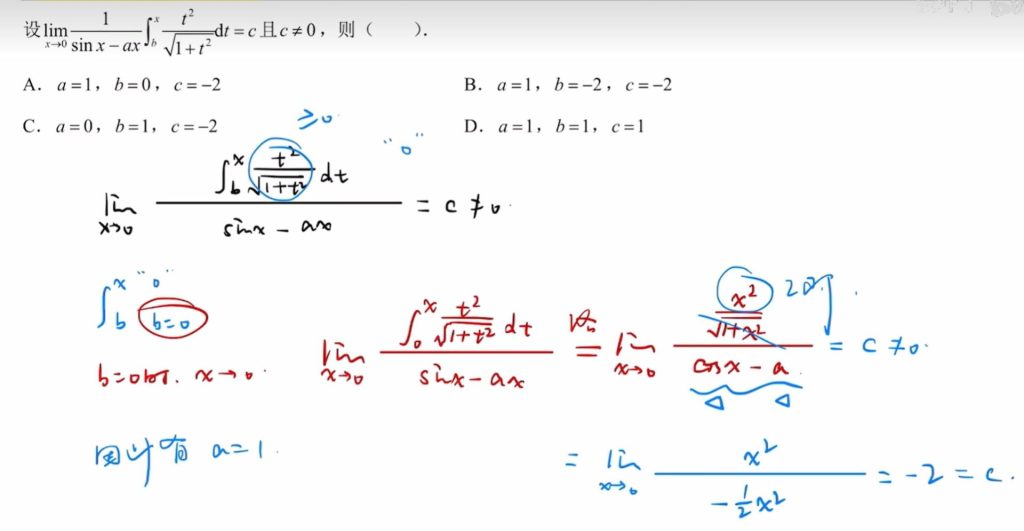 设lim_{x→0} \frac{1}{\sin x - ax} \int_b^x \frac{t^2}{\sqrt{1+t^2}} dt = c 且 c ≠ 0，则（　　）.
A. a=1，b=0，c=-2
B. a=1，b=-2，c=-2
C. a=0，b=1，c=-2
D. a=1，b=1，c=1
≥0
"0"
lim_{x→0} \frac{\int_b^x \frac{t^2}{\sqrt{1+t^2}} dt}{\sin x - ax} = c ≠ 0.
\int_b^x "0" b=0
b=0时. x→0.
lim_{x→0} \frac{\int_0^x \frac{t^2}{\sqrt{1+t^2}} dt}{\sin x - ax} = lim_{x→0} \frac{\frac{x^2}{\sqrt{1+x^2}}}{\cos x - a} = c ≠ 0.
2阶.
因此有 a=1.
= lim_{x→0} \frac{x^2}{-\frac{1}{2}x^2} = -2 = c.